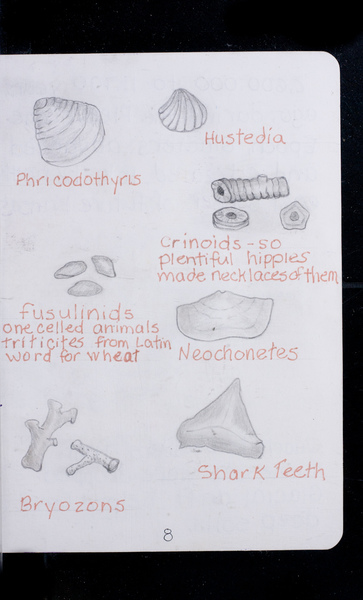 Hustedia
Phricodothyris
Crinoids - so
plentiful hippies
made necklaces of them
fusulinids
one celled animals
triticites from Latin
word for wheat
Neochonetes
Shark Teeth
Bryozons
8